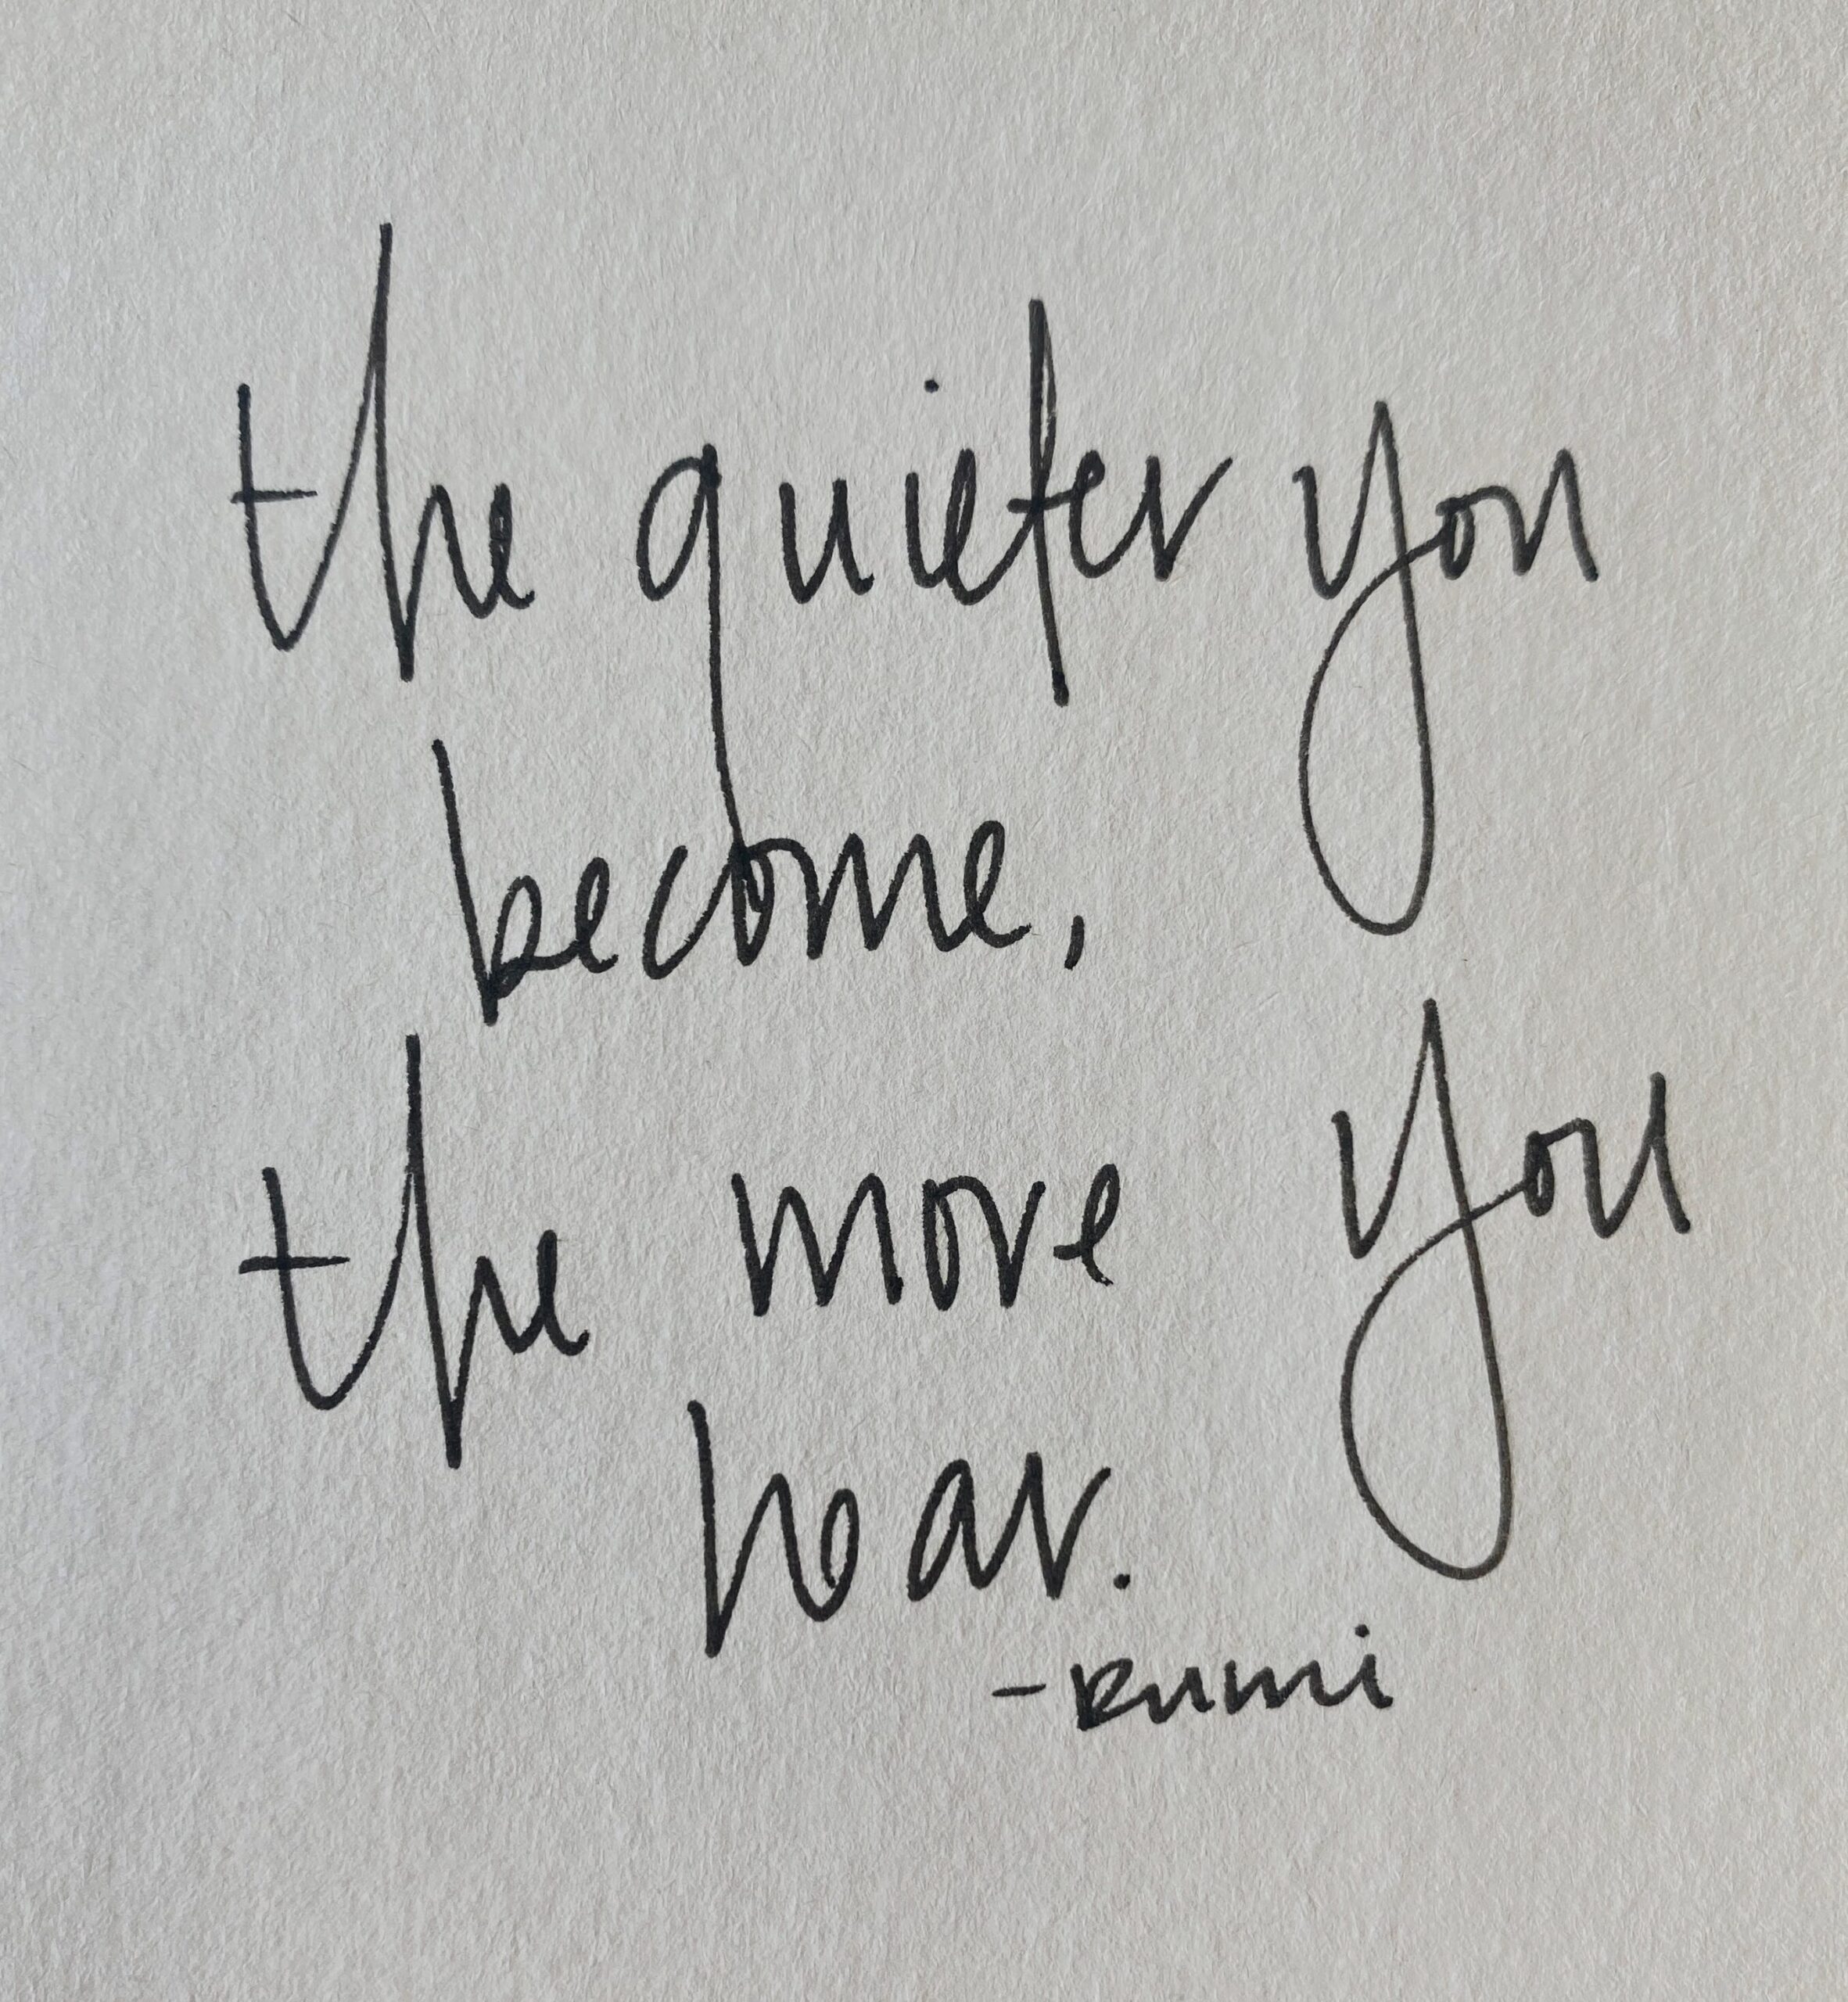 the quieter you
become,
the more you
hear.
-Rumi